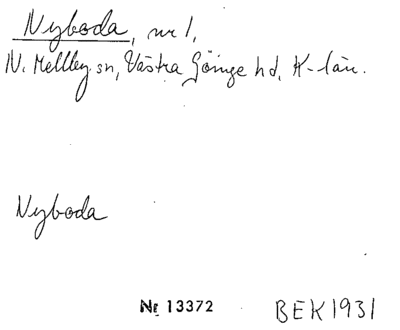 Nyboda, nr 1,
N. Mellby sn, Västra Göinge hd, K-län.
Nyboda
Nr 13372
BEK 1931